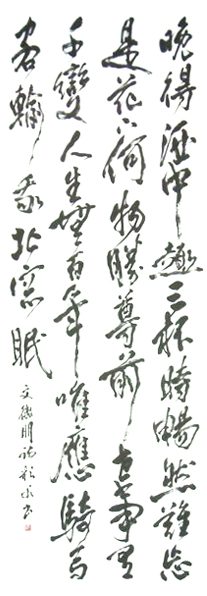 晚得酒中趣三杯時暢然難忘
是花下何物勝尊前世事有
千變人生無百年唯應騎馬
客輸我北窗眠
文徵明詩